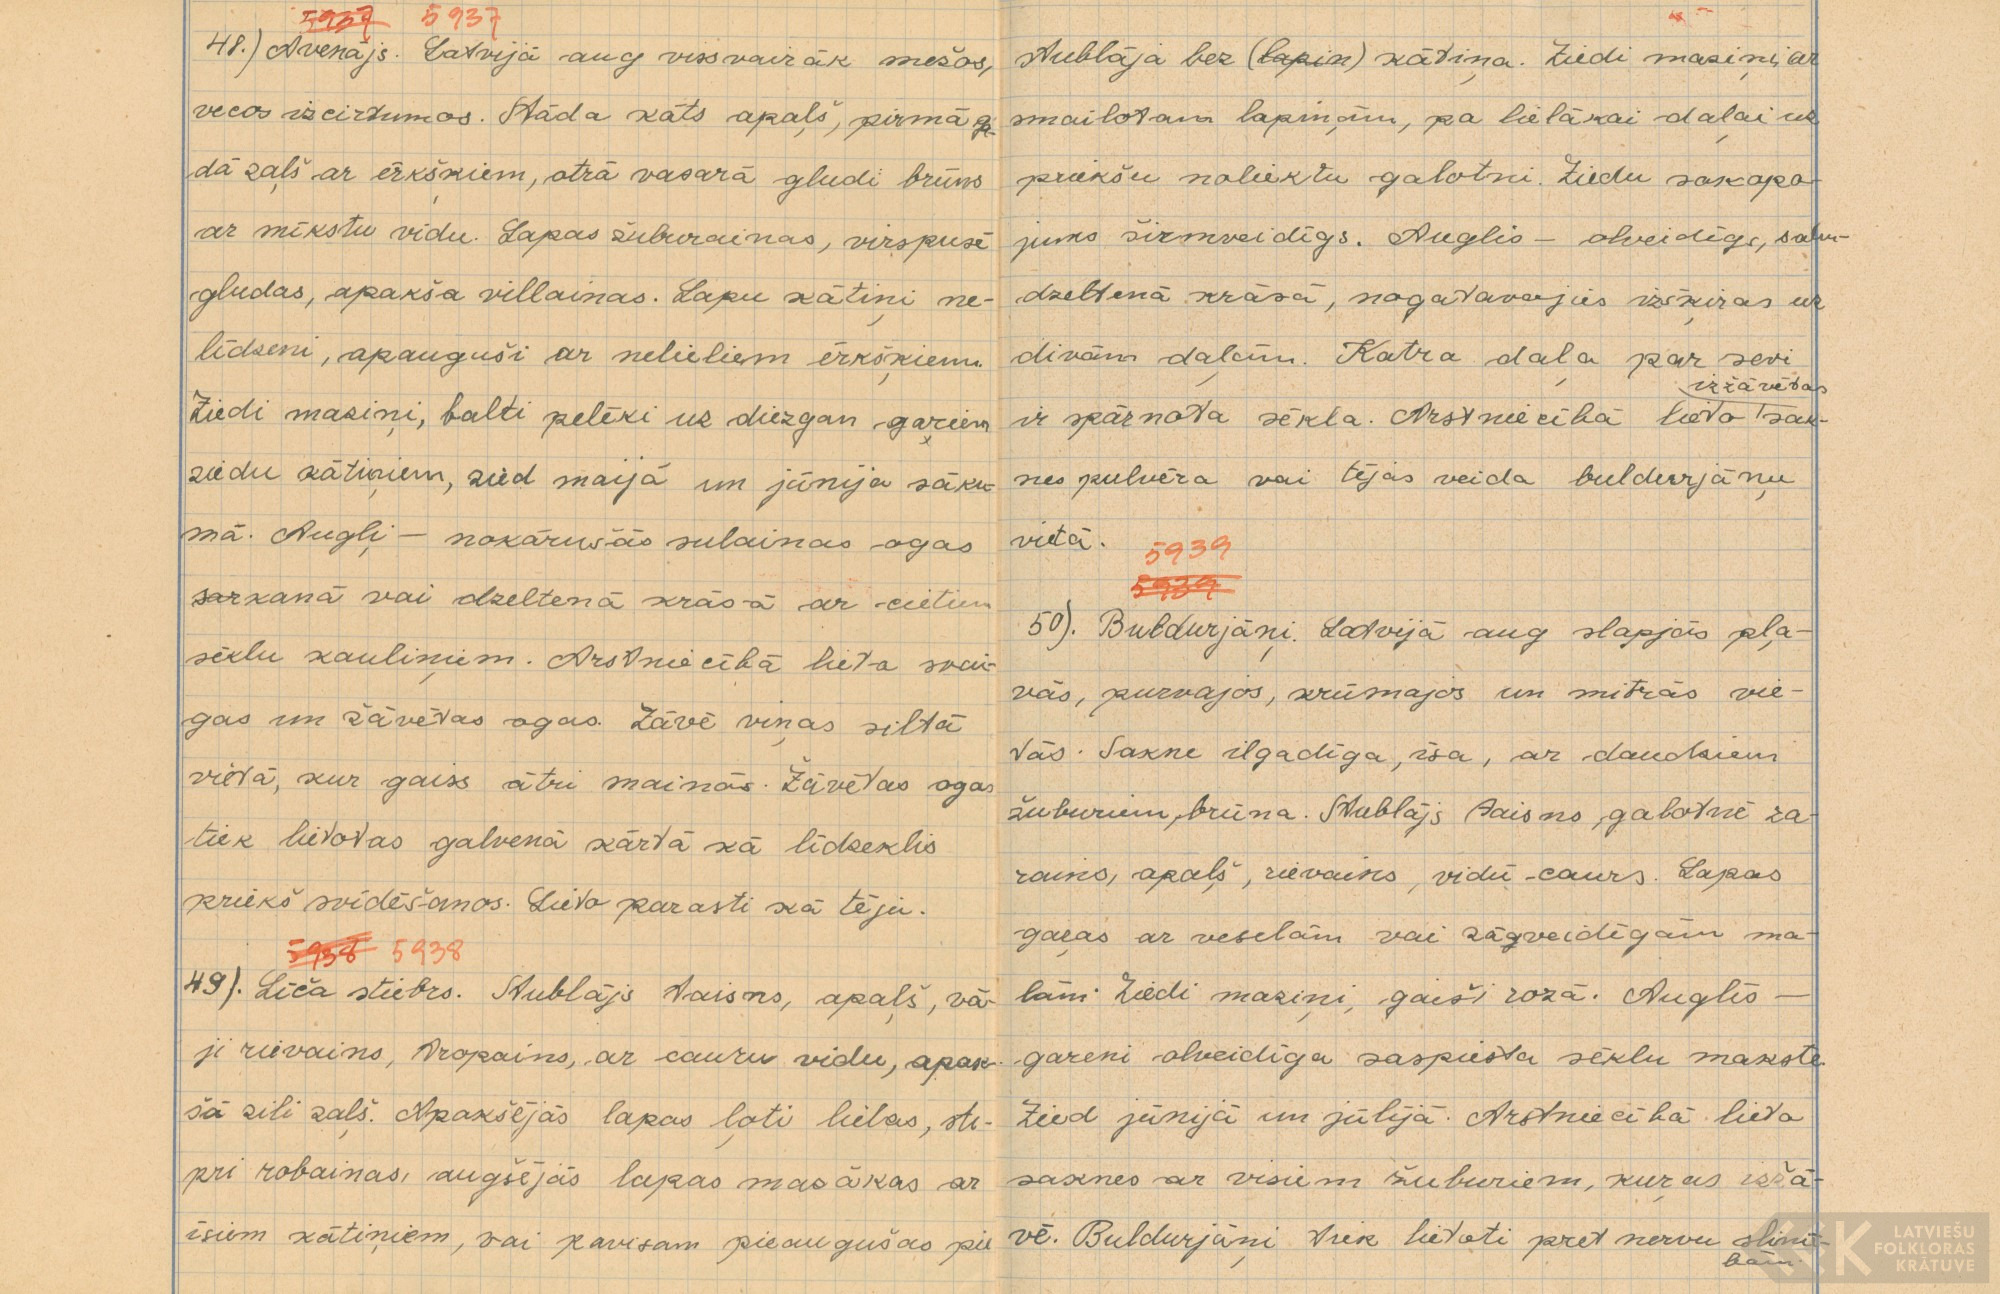 5937 5937
48.) Avenājs. Latvijā aug vissvairāk mežos,
vecos izcirtumos. Stāda kāts apaļš, pirmā ga-
dā zaļš ar ērkšķiem, otrā vasarā gludi brūns
ar mīkstu vidu. Lapas žuburainas, virspusē
gludas, apakša villainas. Lapu kātiņi ne-
līdzeni, apauguši ar nelieliem ērkšķiem.
Ziedi maziņi, balti pelēki uz diezgan gaŗiem
ziedu kātiņiem, zied maijā un jūnija sāku-
mā. Augļi — nokārušās sulainas ogas
sarkanā vai dzeltenā krāsā ar cietiem
sēklu kauliņiem. Arstniecībā lieto svai-
gas un žāvētas ogas. Žāvē viņas siltā
vietā, kur gaiss ātri mainās. Žāvētas ogas
tiek lietotas galvenā kārtā kā līdzeklis
priekš svīdēšanos. Lieto parasti kā tēju.
5938 5938
49). Līča stiebrs. Stublājs taisns, apaļš, vā-
ji rievains, tropains, ar cauru vidu, apak-
šā zili zaļš. Apakšējās lapas ļoti lielas, sti-
pri robainas, augšējās lapas mazākas ar
īsiem kātiņiem, vai pavisam pieaugušas pie
stublāja bez (lapin) kātiņa. Ziedi maziņi, ar
smailotam lapiņām, pa lielākai daļai uz
priekšu noliektu galotni. Ziedu sakopo-
jums širmveidīgs. Auglis — olveidīgs, salm-
dzeltenā krāsā, nogatavojies izšķiras uz
divām daļām. Katra daļa par sevi
izžāvētas
ir spārnota sēkla. Arstniecībā lieto sak-
nes pulvēra vai tējas veida buldurjāņu
vietā.
5939
5939
50). Buldurjāņi. Latvijā aug slapjās pļa-
vās, purvajos, krūmajos un mitrās vie-
tās. Sakne ilgadīga, īsa, ar daudziem
žuburiem, brūna. Stublājs taisns, galotnē za-
rains, apaļš, rievains, vidū caurs. Lapas
gaŗas ar veselām vai zāgveidīgām ma-
lām. Ziedi maziņi, gaiši rozā. Auglis —
gareni olveidīga saspiesta sēklu makste.
Zied jūnijā un jūlijā. Arstniecībā lieto
saknes ar visiem žuburiem, kuŗas izžā-
vē. Buldurjāņi tiek lietoti pret nervu slimī-
bām.
LATVIEŠU
FOLKLORAS
KRĀTUVE